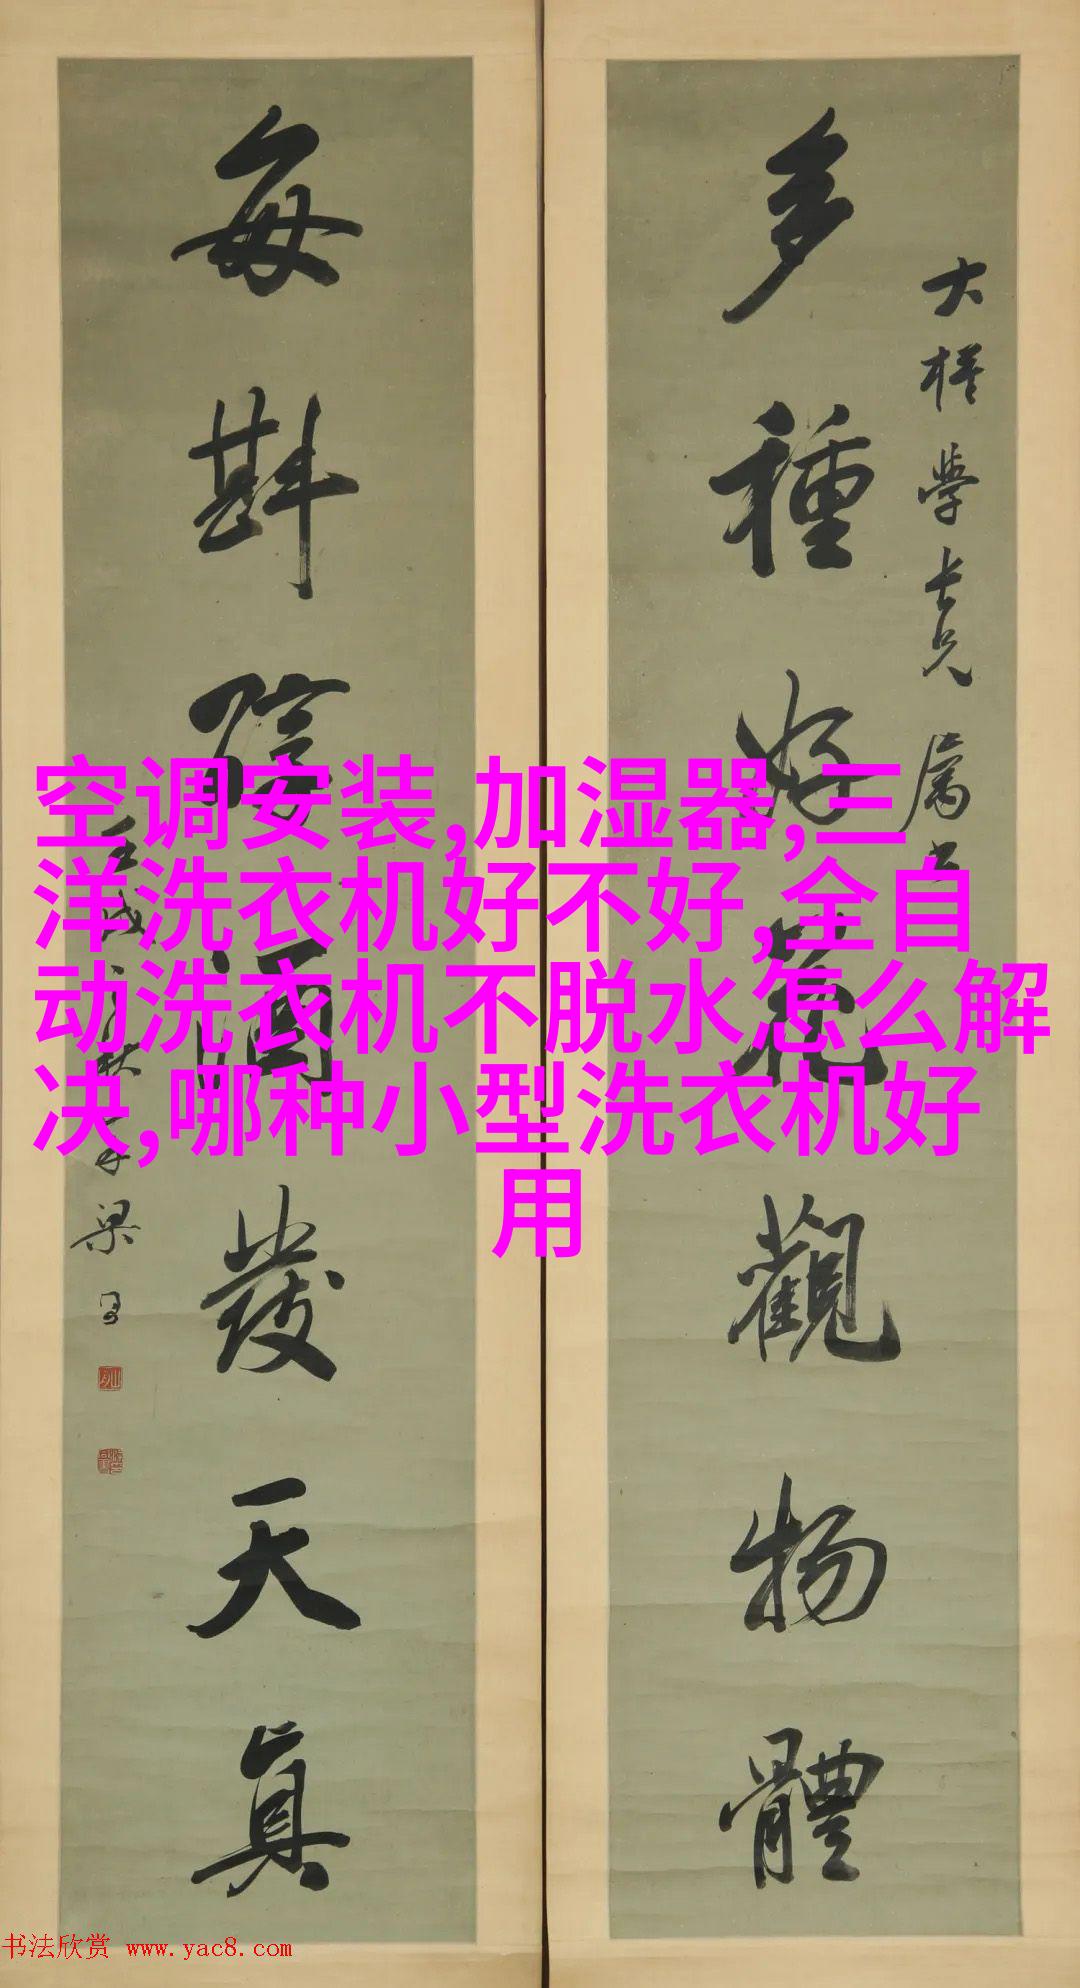 多種好花觀物體
大樣學長兄屬書
每斟陰酒發天真
空调安装,加湿器,三
洋洗衣机好不好,全自
动洗衣机不脱水怎么解
决,哪种小型洗衣机好
用
书法欣赏 www.yac8.com